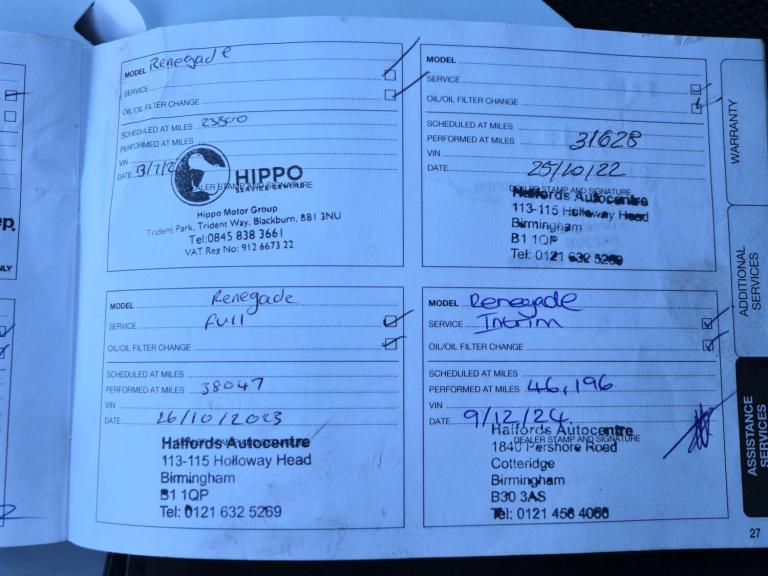 MODEL Renegade
SERVICE
OIL/OIL FILTER CHANGE
SCHEDULED AT MILES 23800
PERFORMED AT MILES
VIN
DATE 13/7/2
HIPPO
SERVICE CENTRE
DEALER STAMP AND SIGNATURE
Hippo Motor Group
Trident Park, Trident Way, Blackburn, BB1 3NU
Tel:0845 838 3661
VAT Reg No: 912 6673 22
MODEL
SERVICE
OIL/OIL FILTER CHANGE
SCHEDULED AT MILES
PERFORMED AT MILES 31628
VIN
DATE 25/10/22
DEALER STAMP AND SIGNATURE
Halfords Autocentre
113-115 Holloway Head
Birmingham
B1 1QP
Tel: 0121 632 5269
MODEL Renegade
SERVICE Full
OIL/OIL FILTER CHANGE
SCHEDULED AT MILES
PERFORMED AT MILES 38047
VIN
DATE 26/10/2023
Halfords Autocentre
113-115 Holloway Head
Birmingham
B1 1QP
Tel: 0121 632 5269
MODEL Renegade
SERVICE Interim
OIL/OIL FILTER CHANGE
SCHEDULED AT MILES
PERFORMED AT MILES 46,196
VIN
DATE 9/12/24
Halfords Autocentre
DEALER STAMP AND SIGNATURE
1840 Pershore Road
Cotteridge
Birmingham
B30 3AS
Tel: 0121 458 4066
WARRANTY
ADDITIONAL
SERVICES
ASSISTANCE
SERVICES
27